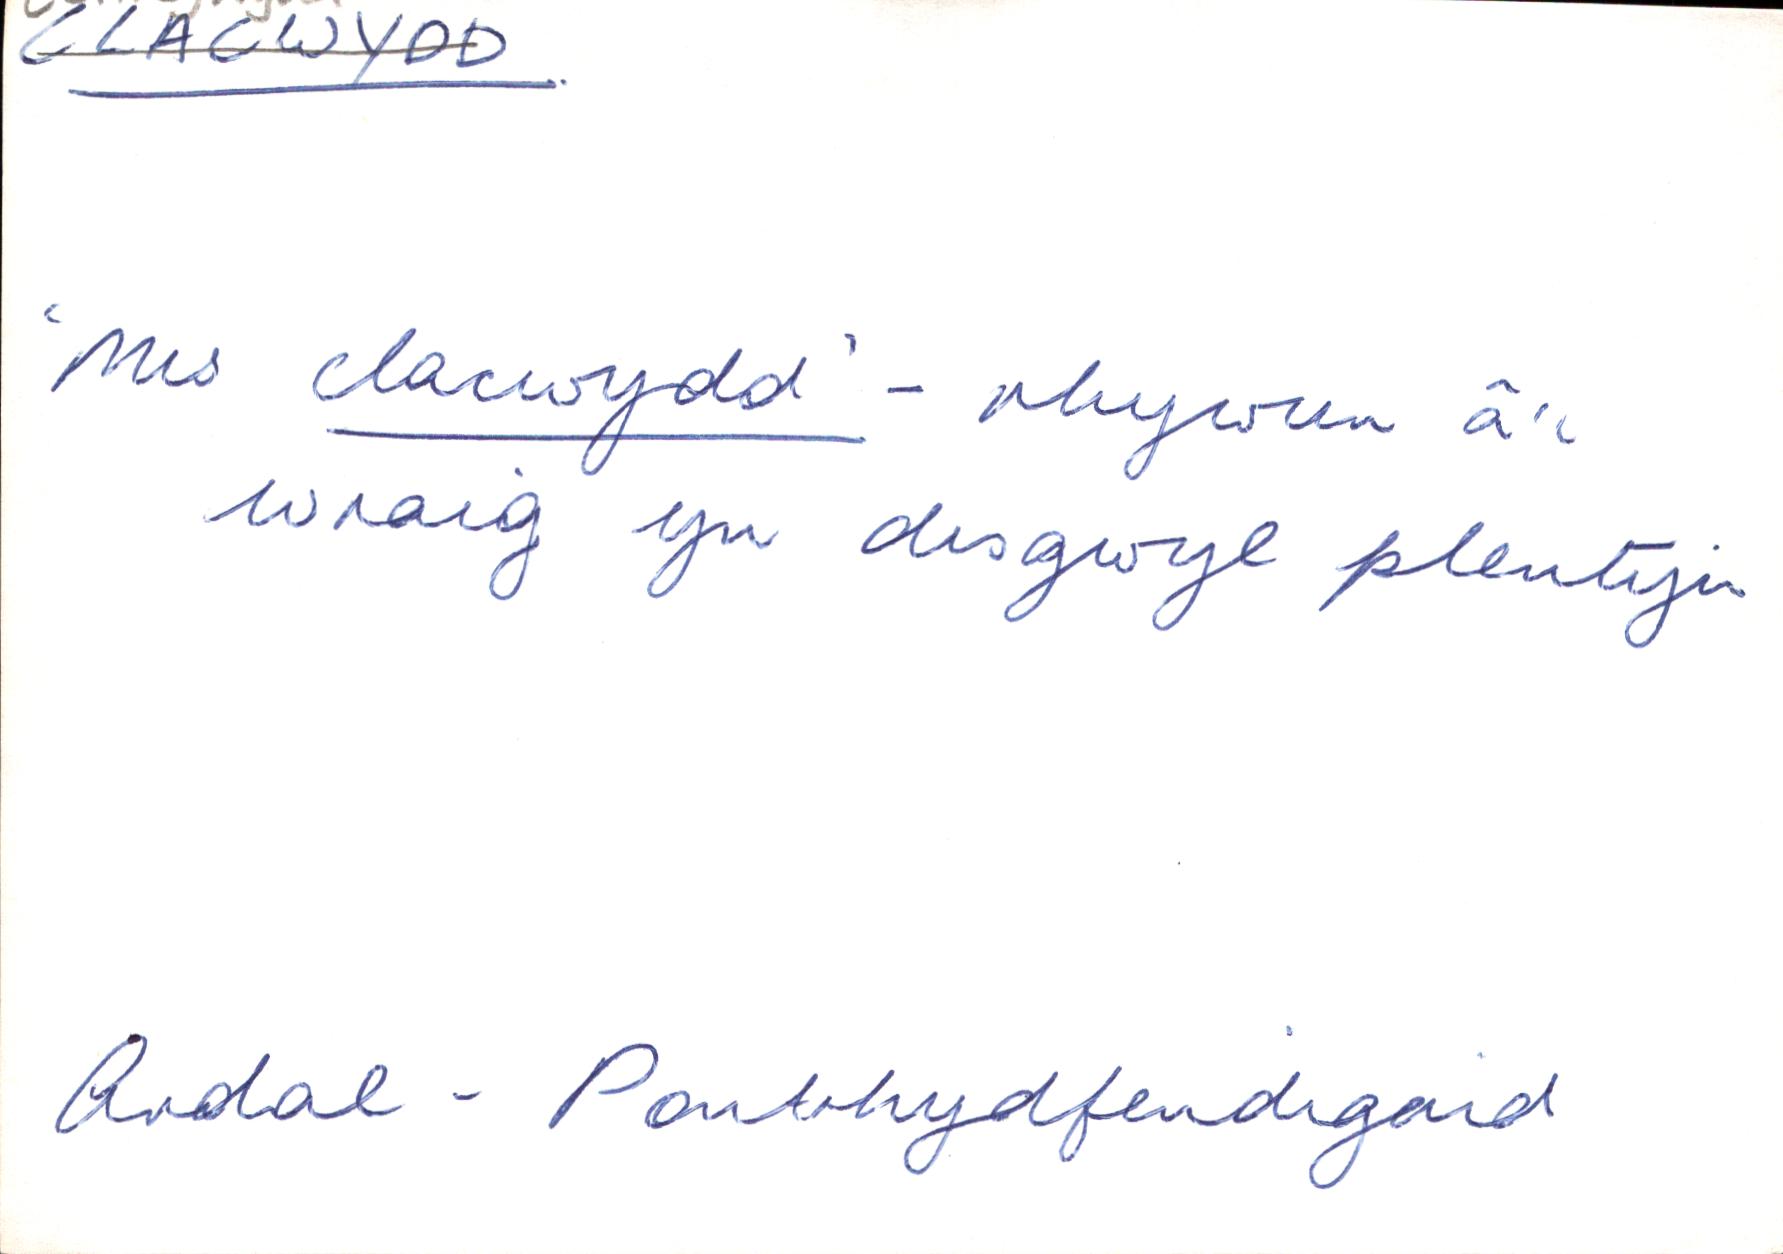 CLACWYDD.
'Mis clacwydd' - rhywun â'i
wraig yn disgwyl plentyn
Ardal - Pontrhydfendigaid